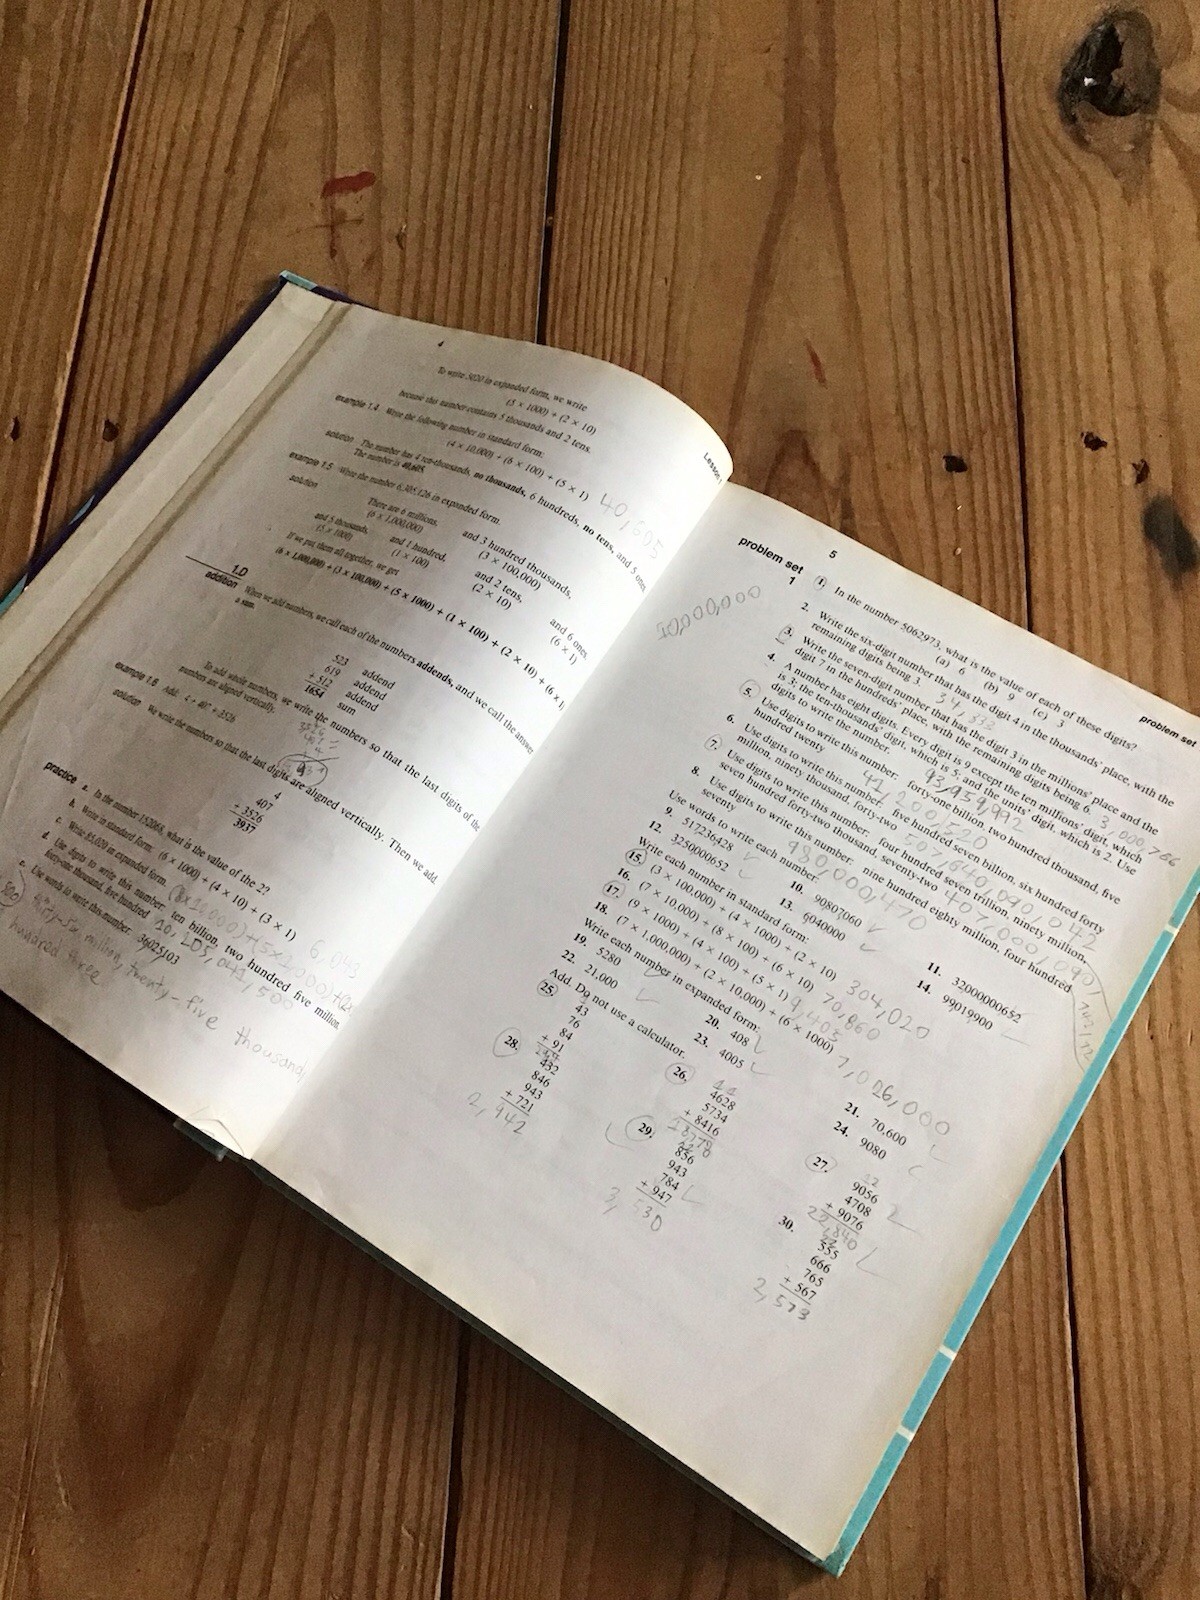 4
To write 5020 in expanded form, we write
(5 × 1000) + (2 × 10)
because this number contains 5 thousands and 2 tens.
example 1.4 Write the following number in standard form:
(4 × 10,000) + (6 × 100) + (5 × 1) 40,605
solution The number has 4 ten-thousands, no thousands, 6 hundreds, no tens, and 5 ones.
The number is 40,605.
example 1.5 Write the number 6,305,126 in expanded form.
solution There are 6 millions, and 3 hundred thousands,
(6 × 1,000,000) (3 × 100,000)
and 5 thousands, and 1 hundred, and 2 tens, and 6 ones.
(5 × 1000) (1 × 100) (2 × 10) (6 × 1)
If we put them all together, we get
(6 × 1,000,000) + (3 × 100,000) + (5 × 1000) + (1 × 100) + (2 × 10) + (6 × 1)
1.D
addition When we add numbers, we call each of the numbers addends, and we call the answer
a sum.
523 addend
619 addend
+ 512 addend
1654 sum
To add whole numbers, we write the numbers so that the last digits of the
numbers are aligned vertically.
example 1.6 Add: 4 + 407 + 3526
solution We write the numbers so that the last digits are aligned vertically. Then we add.
4
407
+ 3526
3937
practice a. In the number 152068, what is the value of the 2?
b. Write in standard form: (6 × 1000) + (4 × 10) + (3 × 1) 6,043
c. Write 85,020 in expanded form.
d. Use digits to write this number: ten billion, two hundred five million,
forty-one thousand, five hundred
e. Use words to write this number: 36025103
million, twenty-five thousand
hundred three
Lesson 1
5
problem set
problem set
1
1. In the number 5062973, what is the value of each of these digits?
(a) 6 (b) 9 (c) 3
2. Write the six-digit number that has the digit 4 in the thousands' place, with the
remaining digits being 3.
3. Write the seven-digit number that has the digit 3 in the millions' place and the
digit 7 in the hundreds' place, with the remaining digits being 6. 3,000,766
4. A number has eight digits. Every digit is 9 except the ten millions' digit, which
is 3; the ten-thousands' digit, which is 5; and the units' digit, which is 2. Use
digits to write the number. 93,959,992
5. Use digits to write this number: forty-one billion, two hundred thousand, five
hundred twenty 41,200,520
6. Use digits to write this number: five hundred seven billion, six hundred forty
million, ninety thousand, forty-two 507,640,090,042
7. Use digits to write this number: four hundred seven trillion, ninety million,
seven hundred forty-two thousand, seventy-two
8. Use digits to write this number: nine hundred eighty million, four hundred
seventy 980,000,470
Use words to write each number:
9. 517236428 10. 90807060 11. 32000000652
12. 3250000652 13. 6040000 14. 99019900
Write each number in standard form:
15. (3 × 100,000) + (4 × 1000) + (2 × 10) 304,020
16. (7 × 10,000) + (8 × 100) + (6 × 10) 70,860
17. (9 × 1000) + (4 × 100) + (5 × 1) 9,405
18. (7 × 1,000,000) + (2 × 10,000) + (6 × 1000) 7,026,000
Write each number in expanded form:
19. 5280 20. 408 21. 70,600
22. 21,000 23. 4005 24. 9080
Add. Do not use a calculator.
25. 43 26. 4628 27. 9056
76 5734 4708
84 + 8416 + 9076
+ 91 18778 22,840
28. 432 29. 856 30. 555
846 943 666
943 784 765
+ 721 + 947 + 567
2,942 3,530 2,573